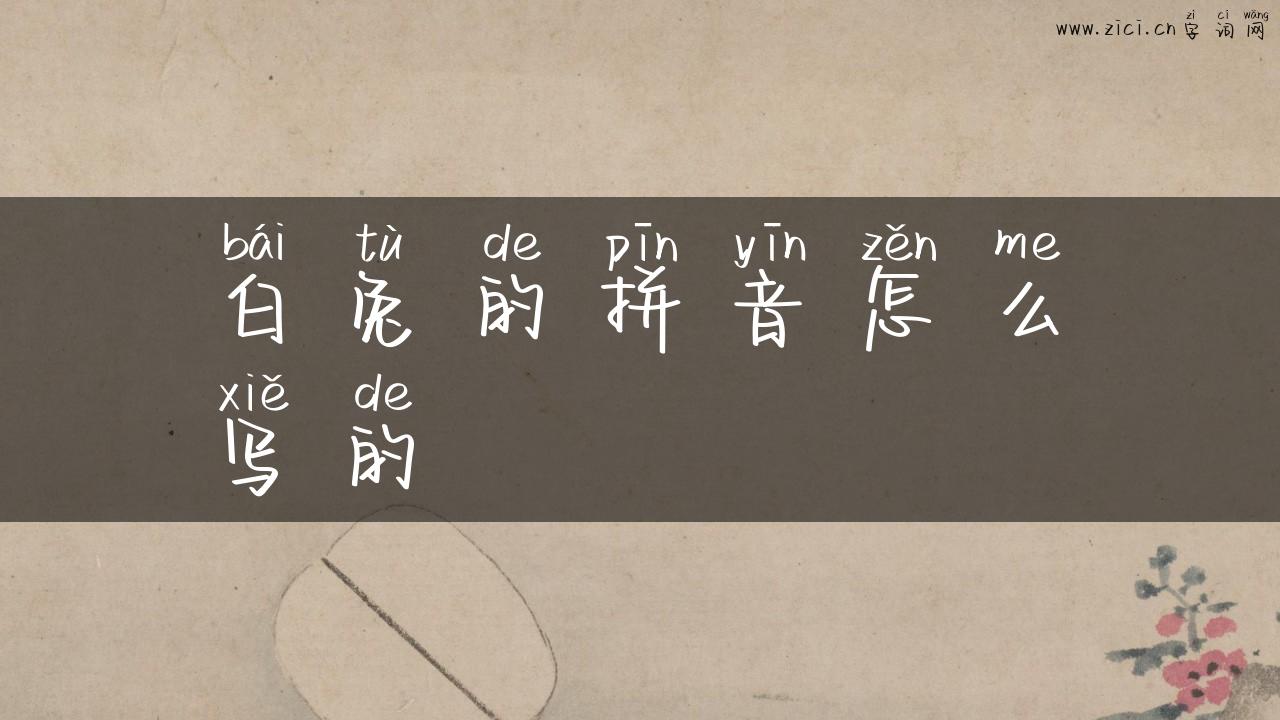 zì cí wǎng
www.zici.cn 字词网
bái tù de pīn yīn zěn me
白兔的拼音怎么
xiě de
写的